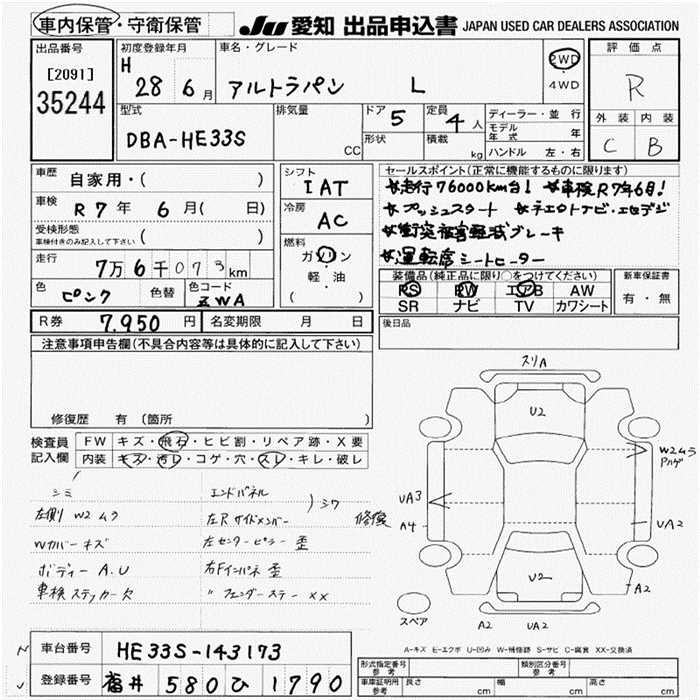 車内保管・守衛保管
JU 愛知 出品申込書 JAPAN USED CAR DEALERS ASSOCIATION
出品番号
[2091]
35244
初度登録年月
H 28年 6月
車名・グレード
アルトラパン L
2WD
・
4WD
評価点
R
外装 内装
C B
型式
DBA-HE33S
排気量
CC
ドア 5
形状
定員 4人
積載 kg
ディーラー・並行
モデル年式 年
ハンドル 左・右
車歴 自家用・( )
車検 R7年 6月( 日)
受検形態
車検付きのみ記入して下さい ( )
走行 7万6千073km
色 ピンク
色替
色コード ZWA
シフト
IAT
冷房
AC
燃料
ガソリン
・
軽・油
( )
セールスポイント(正常に機能するものに限ります)
走行76000km台! 車検R7年6月!
プッシュスタート
衝突被害軽減ブレーキ
運転席シートヒーター
装備品(純正品に限り○をつけてください)
PS PW エアB AW
SR ナビ TV カワシート
新車保証書
有・無
R券 7,950円
名変期限 月 日
後日品
注意事項申告欄(不具合内容等は具体的に記入して下さい)
修復歴 有 (箇所 )
検査員記入欄
FW キズ・飛石・ヒビ割・リペア跡・X要
内装 キズ・汚レ・コゲ・穴・スレ・キレ・破レ
シミ
左側 W2ムラ
Wカバーキズ
ボディー A.U
車検ステッカー欠
エンドパネル
左Rサイドメンバー
)シワ
修復
左センターピラー 歪
右Fインパネ 歪
〃 フェンダーステー XX
スリA
U2
W2ムラ
Pハゲ
UA3
A4
UA2
U2
A2
スペア
A2 UA2
A-キズ E-エクボ U-凹み W-補修跡 S-サビ C-腐食 XX-交換済
車台番号 HE33S-143173
登録番号 福井 580 ひ 1790
形式指定番号
参考
類別区分番号
参考
車庫証明用
参考
長さ cm
幅 cm
高さ cm